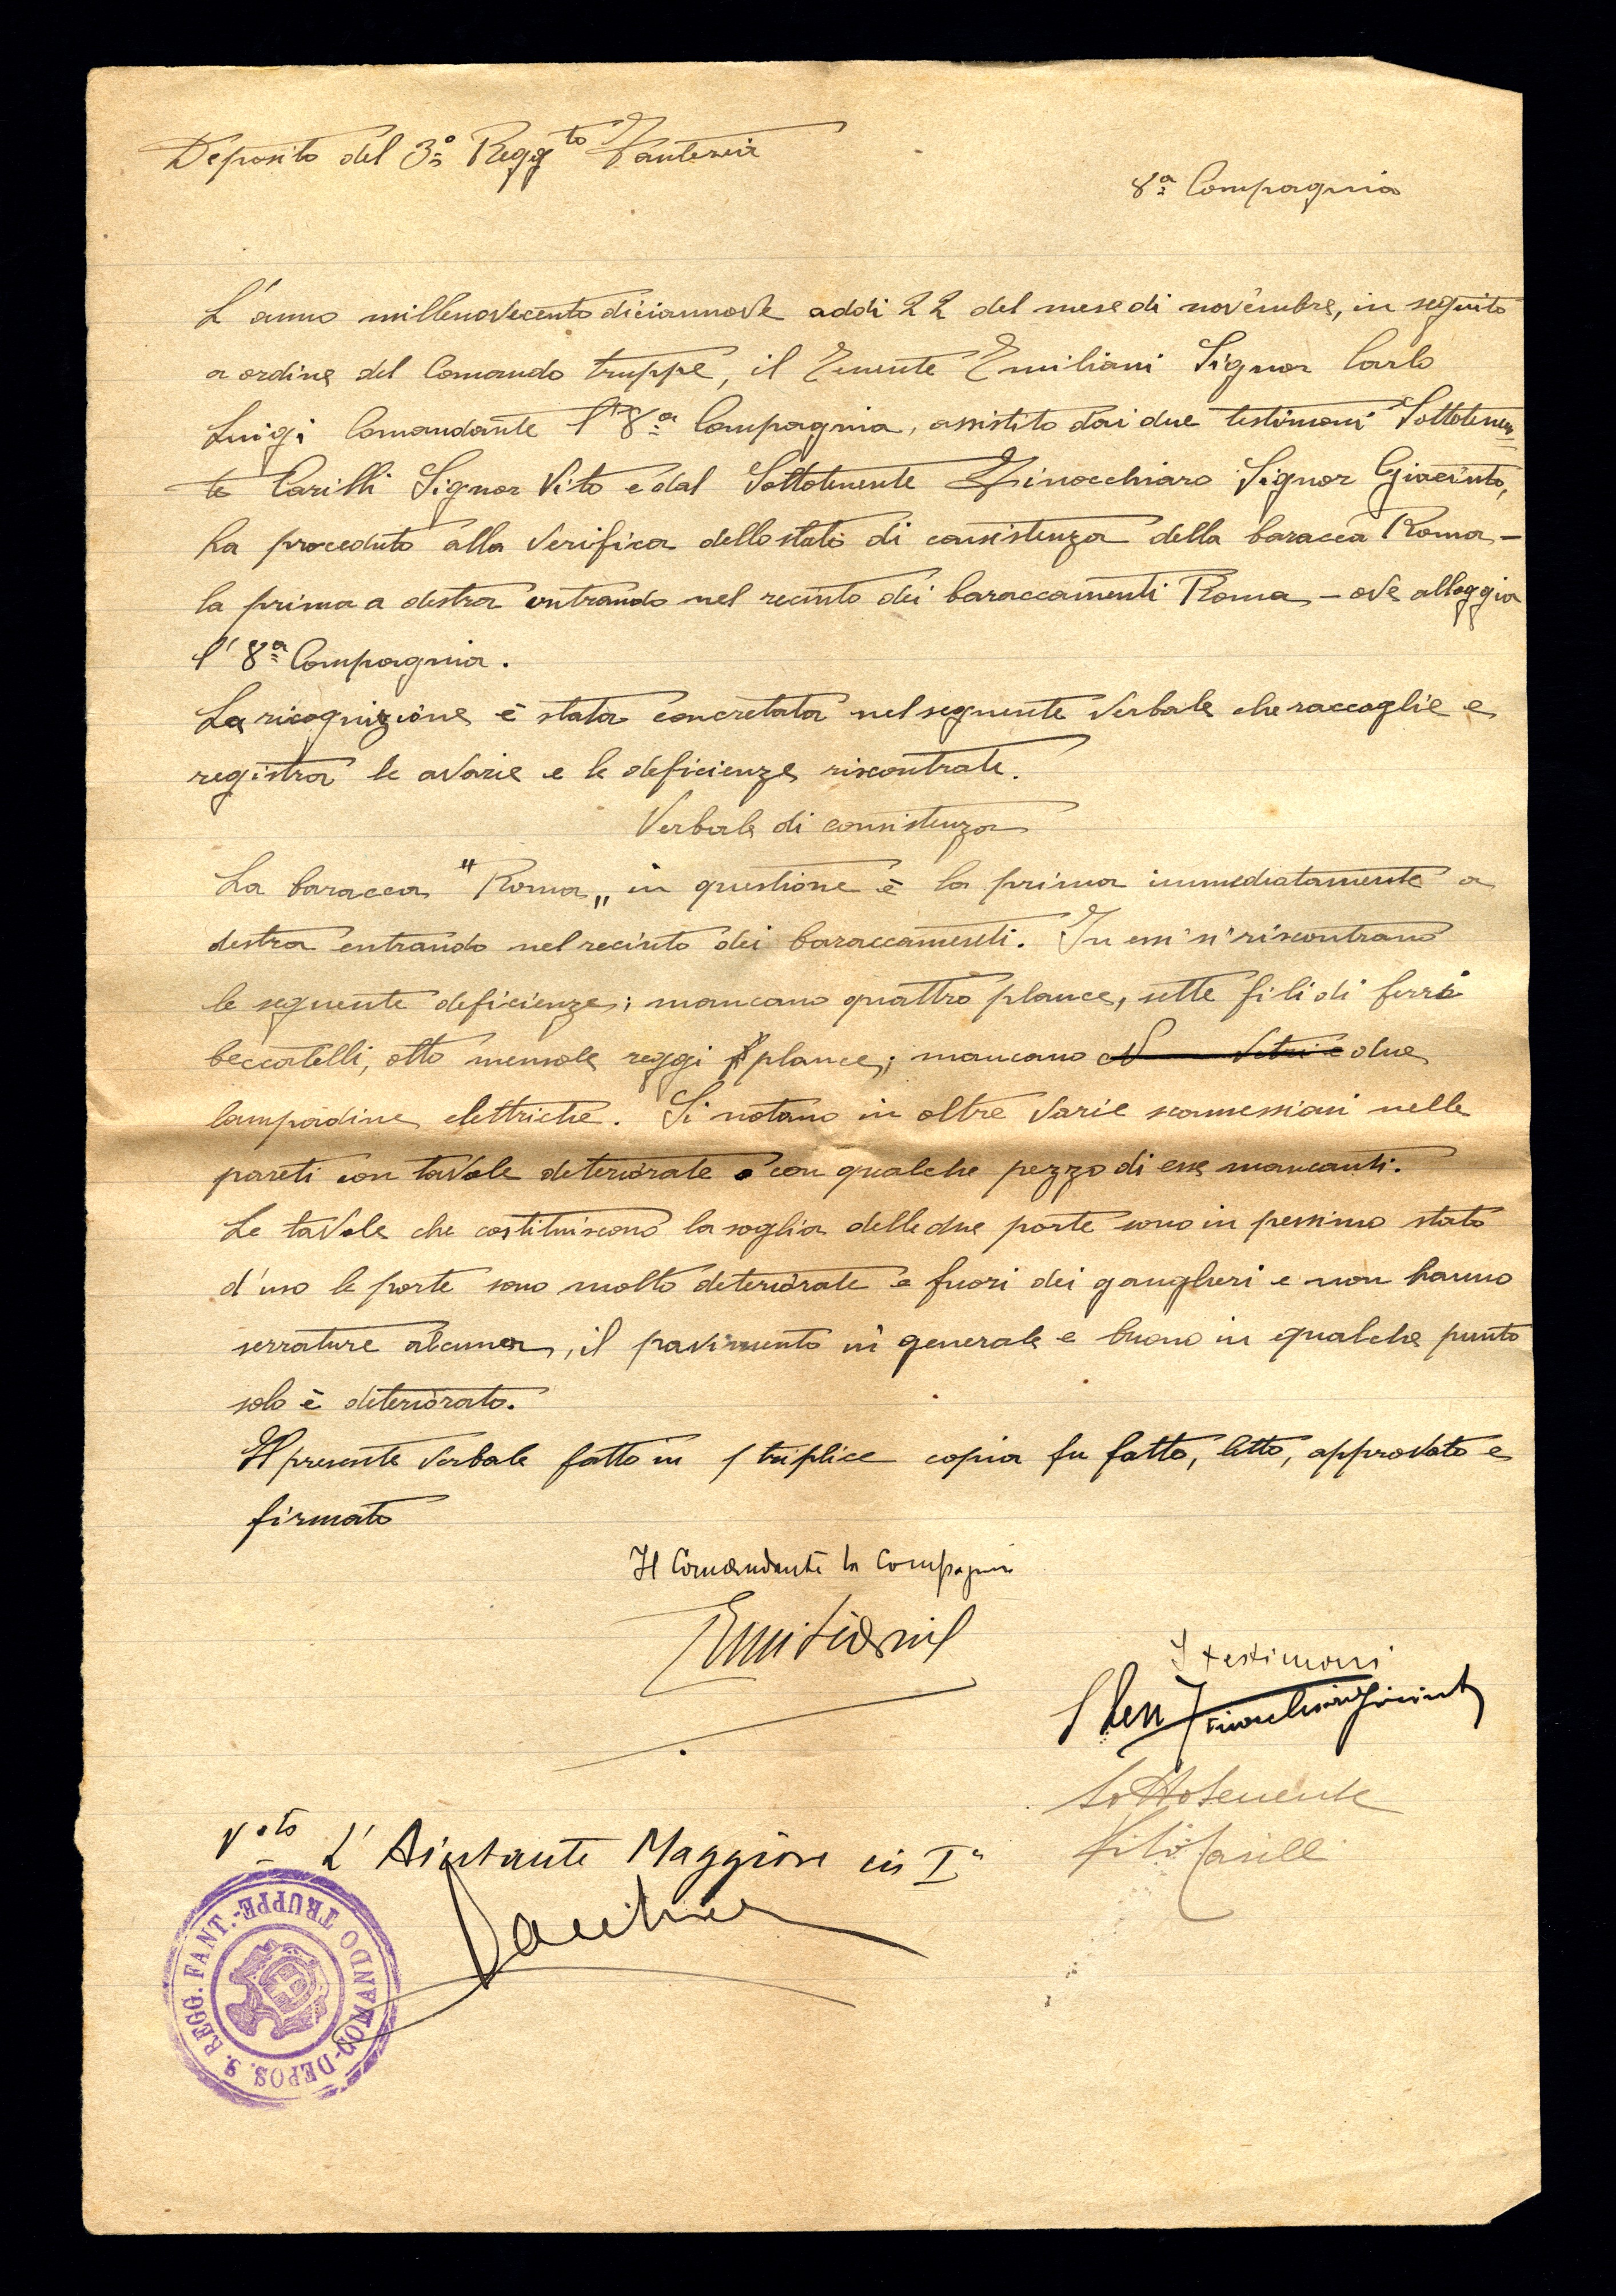 Deposito del 3º Regg.to Fanteria
8ª Compagnia
L'anno millenovecentodiciannove addi 22 del mese di novembre, in seguito
a ordine del Comando truppe, il Tenente Emiliani Signor Carlo
Luigi Comandante l'8ª Compagnia, assistito dai due testimoni Sottotenen=
te Carilli Signor Vito e dal Sottotenente Finocchiaro Signor Giacinto,
ha proceduto alla verifica dello stato di consistenza della baracca Roma –
la prima a destra entrando nel recinto dei baraccamenti Roma – ove alloggia
l'8ª Compagnia.
La ricognizione è stata concretata nel seguente verbale che raccoglie e
registra le avarie e le deficienze riscontrate.
Verbale di consistenza
La baracca "Roma„ in questione è la prima immediatamente a
destra entrando nel recinto dei baraccamenti. In essi si riscontrano
le seguente deficienze; mancano quattro plance, sette fili di ferro
beccatelli, otto mensole reggi plance; mancano due
lampadine elettriche. Si notano in oltre varie sconnessioni nelle
pareti con tavole deteriorate e con qualche pezzo di esse mancanti.
Le tavole che costituiscono la soglia delle due porte sono in pessimo stato
d'uso le porte sono molto deteriorate e fuori dei gangheri e non hanno
serrature alcuna, il pavimento in generale e buono in qualche punto
solo è deteriorato.
Il presente verbale fatto in triplice copia fu fatto, letto, approvato e
firmato
Il Comandante la Compagnia
Emiliani
I testimoni
S Ten Finocchiaro Giacinto
Sottotenente
Vito Carilli
Vº.to L'Aiutante Maggiore in Iª
COMANDO TRUPPE - DEPOS. 3. REGG. FANT. -